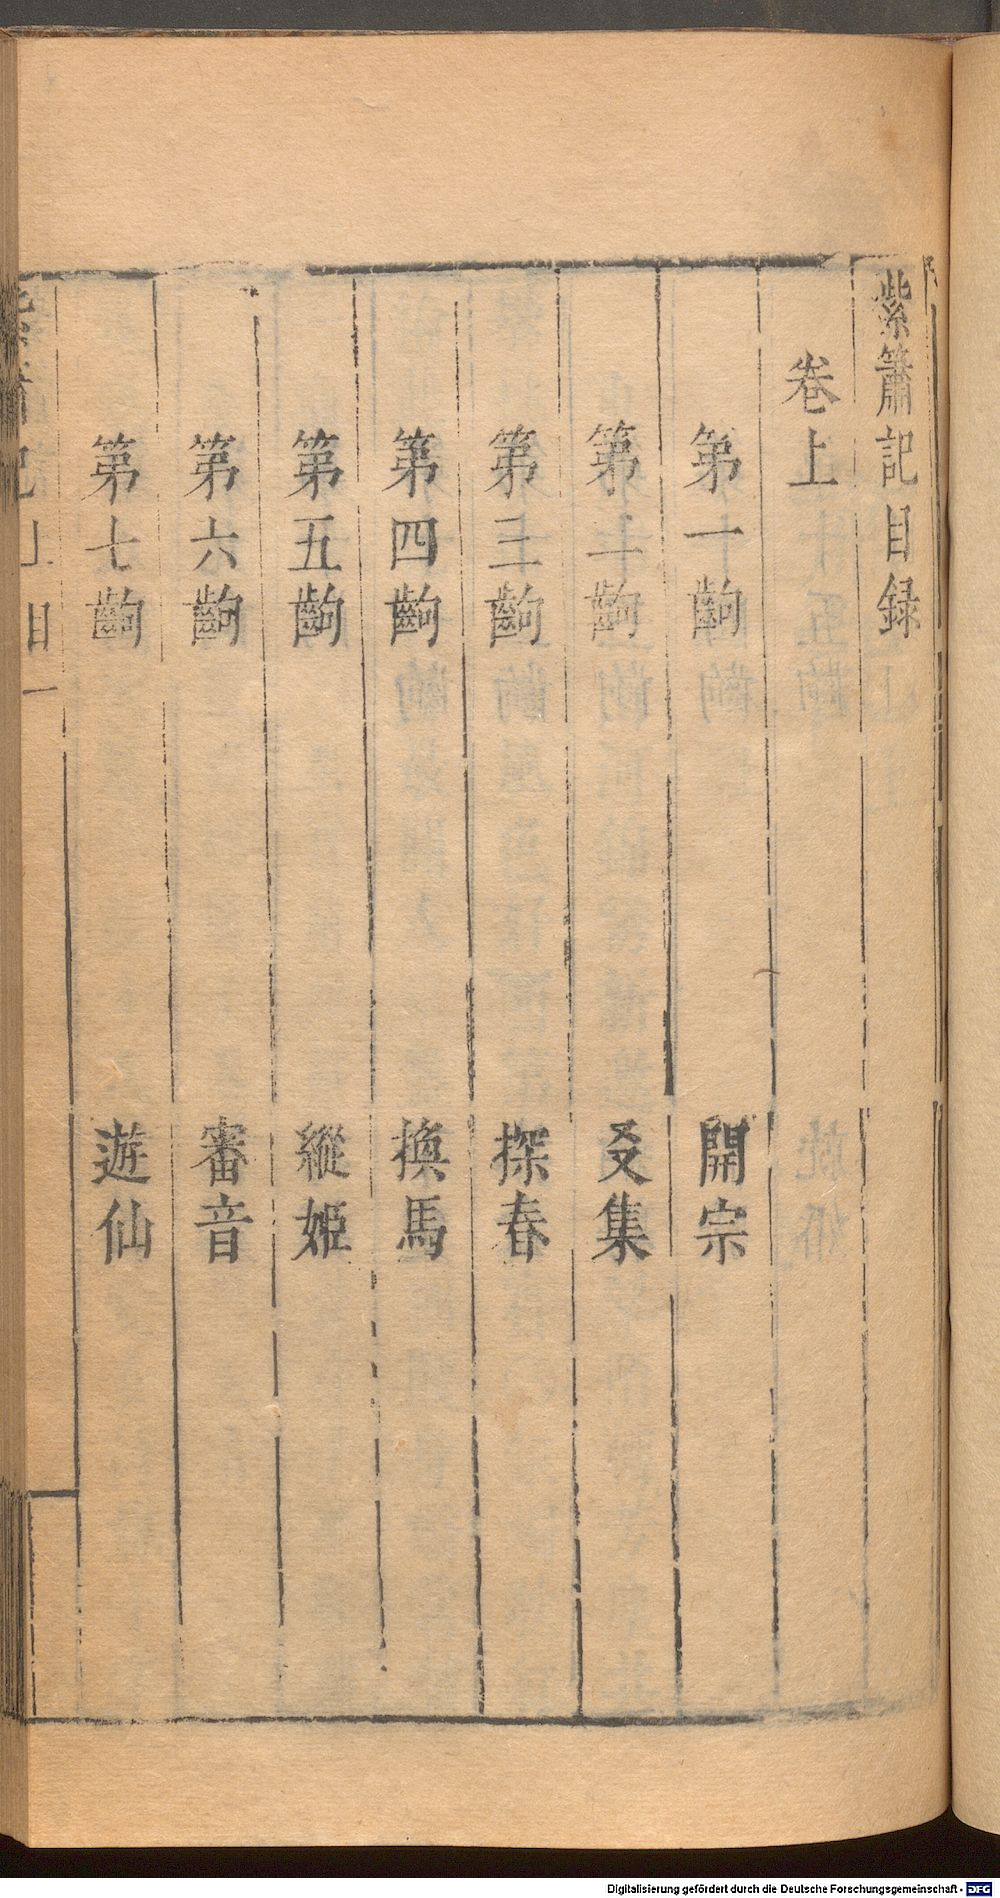 紫簫記目録
卷上
第一齣 開宗
第二齣 友集
第三齣 探春
第四齣 換馬
第五齣 縱姬
第六齣 審音
第七齣 遊仙
紫簫記 上目 一
Digitalisierung gefördert durch die Deutsche Forschungsgemeinschaft - DFG